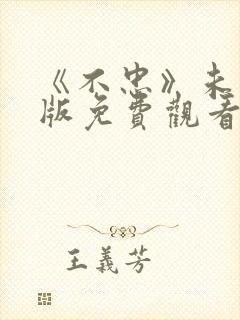 《不忠》未
版免費觀看
王義芳